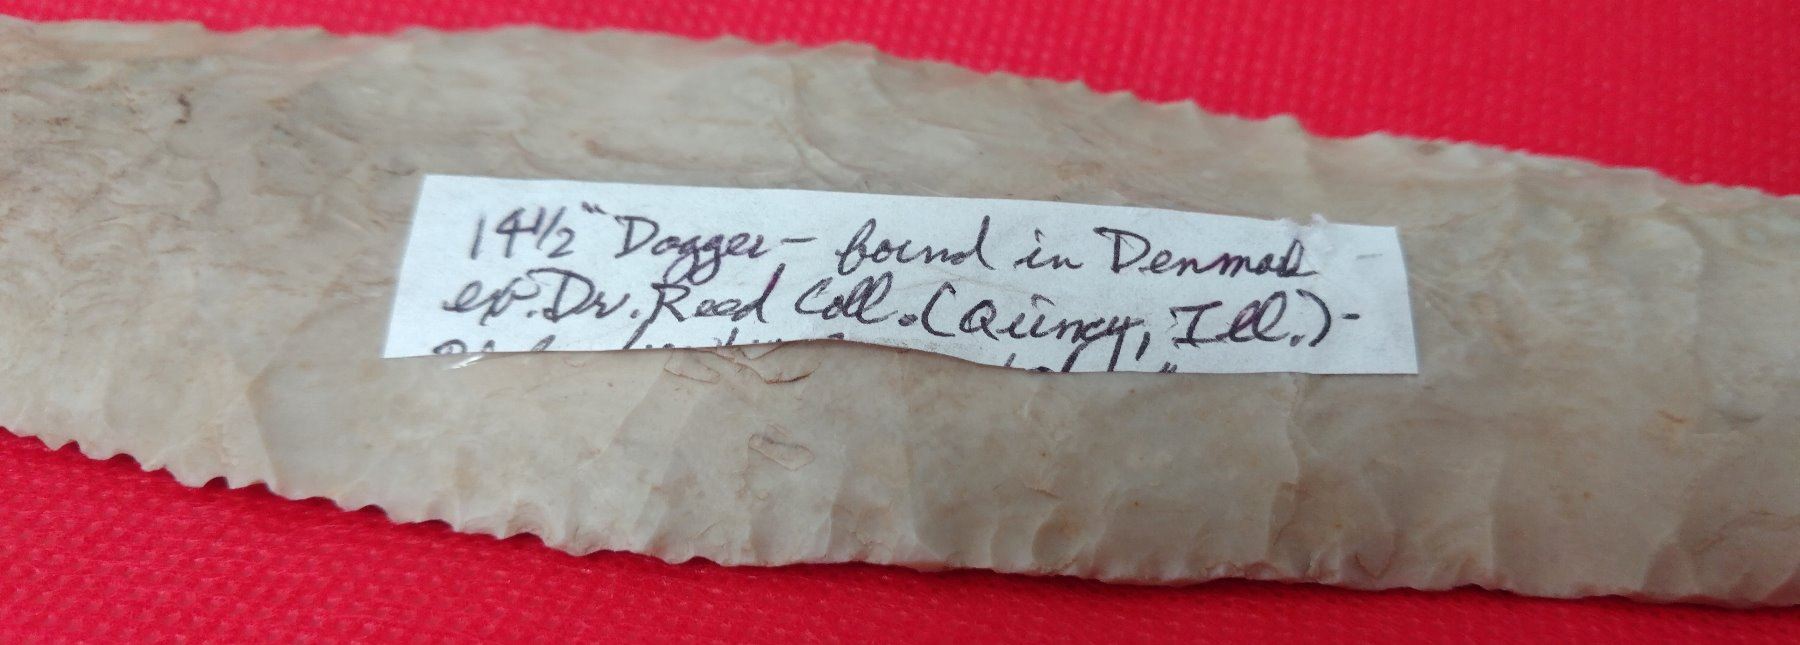 14½" Dagger - found in Denmark
ex. Dr. Reed Coll. (Quincy, Ill.) -